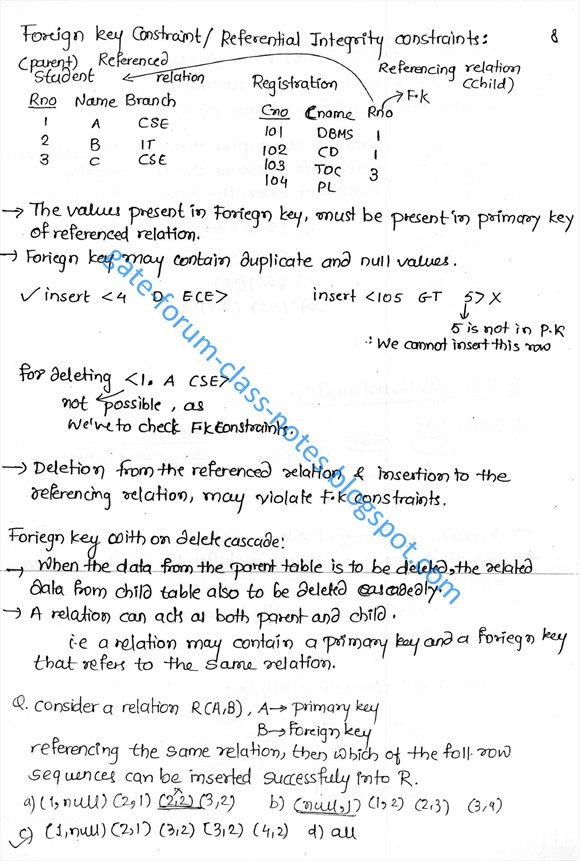 Foreign key Constraint/ Referential Integrity constraints: 8
(parent) Referenced
Student relation
Registration
Referencing relation
(child)
F.K
Rno Name Branch
1 A CSE
2 B IT
3 C CSE
Cno Cname Rno
101 DBMS 1
102 CD 1
103 TOC 3
104 PL
→ The values present in Foriegn key, must be present in primary key
of referenced relation.
→ Foriegn key may contain duplicate and null values.
✓ insert <4 D ECE> insert <105 GT 5> X
5 is not in P.K
∴ We cannot insert this row
for deleting <1. A CSE>
not possible, as
We've to check F.K Constraints.
→ Deletion from the referenced relation & insertion to the
referencing relation, may violate F.K constraints.
Foriegn key with on delete cascade:
→ When the data from the parent table is to be deleted, the related
data from child table also to be deleted cascadedly.
→ A relation can acts as both parent and child.
i.e a relation may contain a primary key and a foriegn key
that refers to the same relation.
Q. consider a relation R(A,B), A→ primary key
B→ foreign key
referencing the same relation, then which of the foll. row
sequences can be inserted successfully into R.
a) (1,null) (2,1) (2,2) (3,2) b) (null,1) (1,2) (2,3) (3,4)
✓ c) (1,null) (2,1) (3,2) (3,2) (4,2) d) all
gate-forum-class-notes.blogspot.com